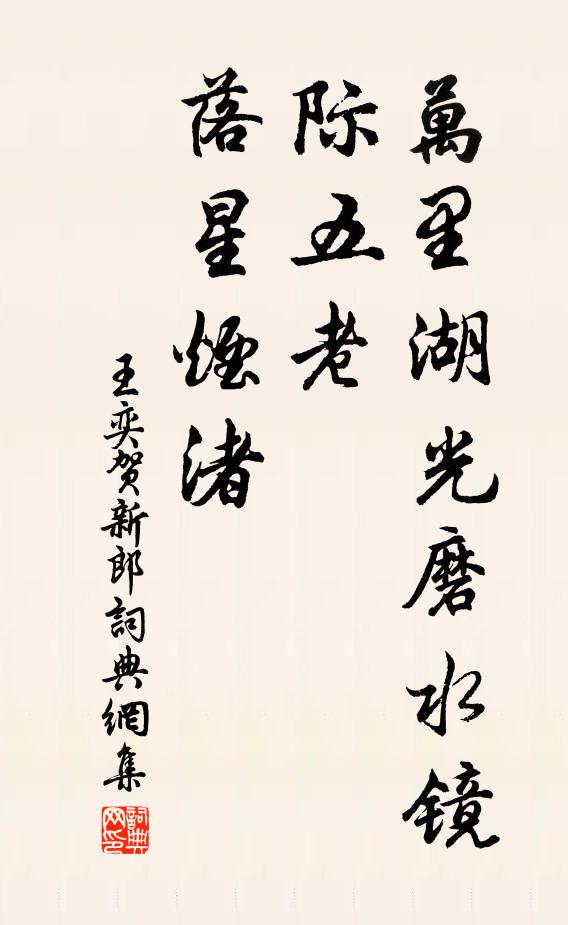 萬里湖光磨水镜
际五老
落星煙渚
王奕贺新郎詞典網集
詞典網印